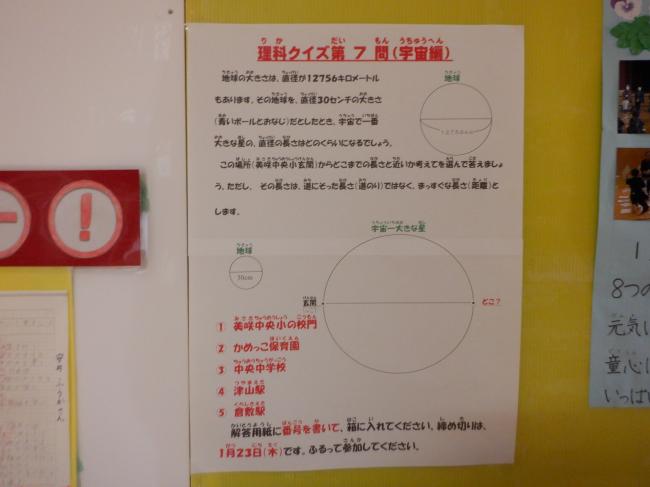 理科クイズ第７問(宇宙編)
地球の大きさは、直径が12756キロメートル
もあります。その地球を、直径30センチの大きさ
(青いボールとおなじ)だとしたとき、宇宙で一番
大きな星の、直径の長さはどのくらいになるでしょう。
この場所(美咲中央小玄関)からどこまでの長さと近いか考えてを選んで答えましょ
う。ただし、その長さは、道にそった長さ(道のり)ではなく、まっすぐな長さ(距離)と
します。
地球
12756km
宇宙一大きな星
地球
30cm
玄関
どこ？
① 美咲中央小の校門
② かめっこ保育園
③ 中央中学校
④ 津山駅
⑤ 倉敷駅
解答用紙に番号を書いて、箱に入れてください。締め切りは、
1月23日(木)です。ふるって参加してください。
!
8つの
元気に
童心に
いっぱい